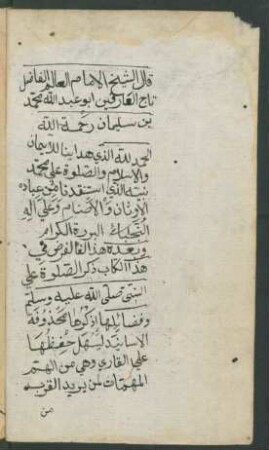 قال الشيخ الامام العالم الفاضل
تاج العارفين ابو عبد الله محمد
بن سليمان رحمة الله
الحمد لله الذي هدانا للايمان
والاسلام والصلوة على محمد
نبيه الذي استنقذنا من عبادة
الاوثان والاصنام وعلى اله
النجباء البررة الكرام
وبعد هذا فالغرض في
هذا الكتاب ذكر الصلوة على
النبي صلى الله عليه وسلم
وفضائلها اذكرها محذوفة
الاسانيد ليسهل حفظها
على القاري وهي من اهم
المهمات لمن يريد القرب
من